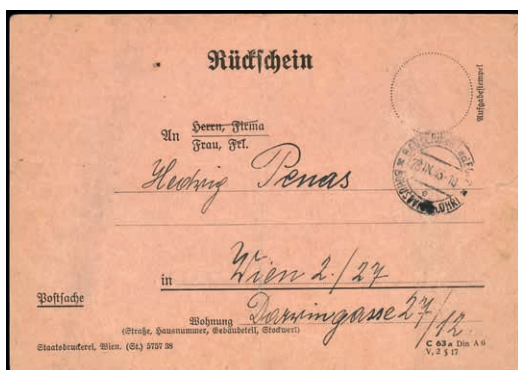 Rückschein
Aufgabestempel
An Herrn, Firma
Frau, Frl.
Hedwig Penas
in Wien 2./27
Postsache
Wohnung Darwingasse 27/12.
(Straße, Hausnummer, Gebäudeteil, Stockwerk)
Staatsdruckerei, Wien. (St.) 5757 38
C 63a Din A 6
V, 2 § 17